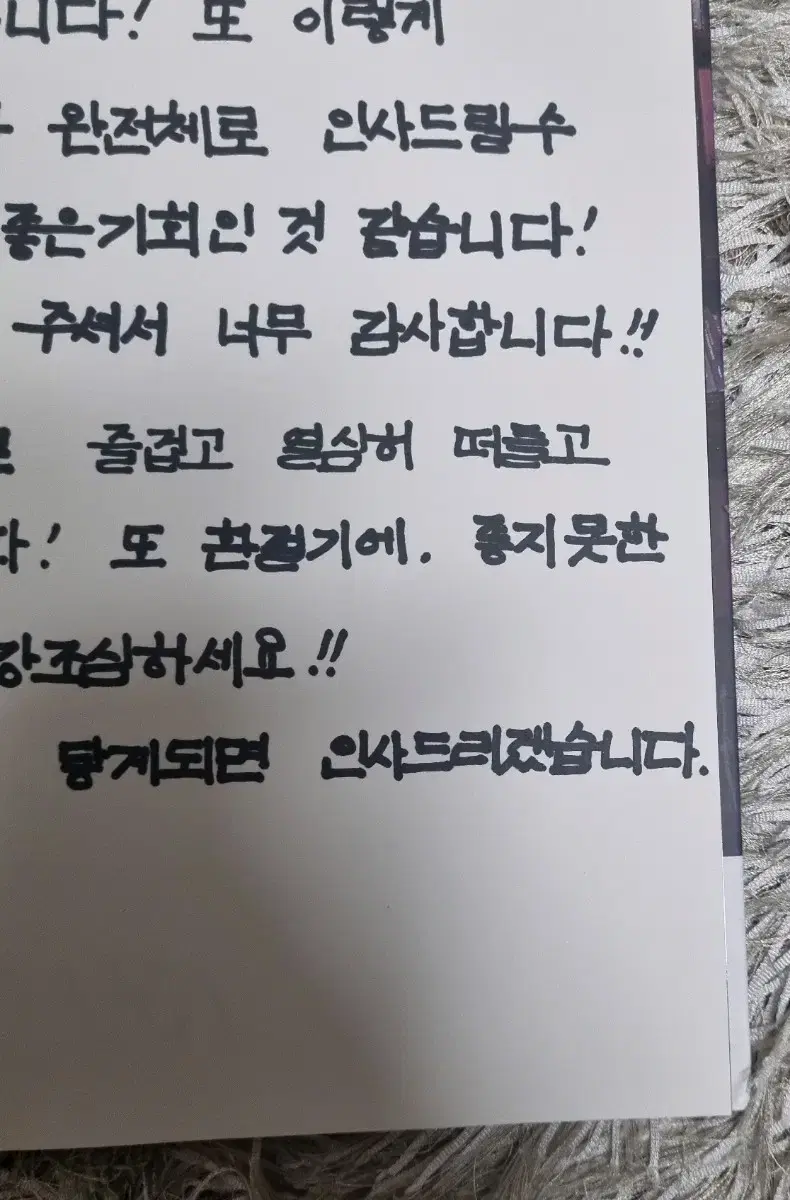 니다! 또 이렇게
완전체로 인사드릴수
좋은기회인 것 같습니다!
주셔서 너무 감사합니다!!
즐겁고 열심히 떠들고
다! 또 환절기에. 좋지못한
강조심하세요!!
닿게되면 인사드리겠습니다.